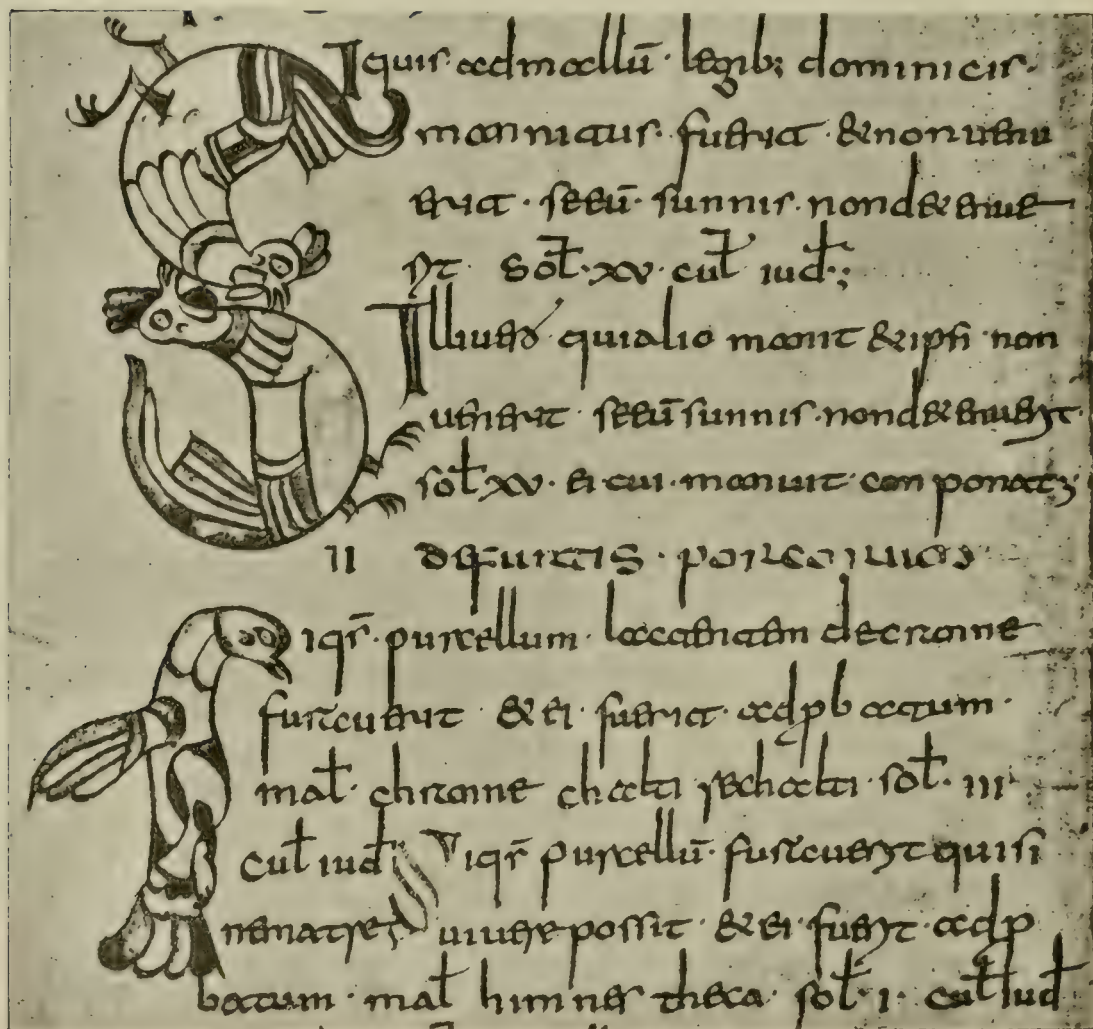 SIquis admallū · legib; dominicis·
mannitus· fuerit · &nonuenu
erit · seeū· sunnis· nond&enue
rit sol̄·xv·cul̄ iud̄·;
Illiuero quialio manit &ipsi non
uenerit seeūsunnis·nond&enuerit·
sol̄ xv· ei·cui·manuit·conponat;
II defurtis · porcorum
Siqr̄· purcellum· lactantem decranne
furauerit &ei fuerit adpbatum·
mal̄· chranne chalti rechalti sol̄· III
cul̄ iud̄ Siqr̄ purcellū· furauerit quisi
nematre uiuere possit · &ei· fuerit· adp
batum · mal̄ himnes theca sol̄· I· cul̄ iud̄